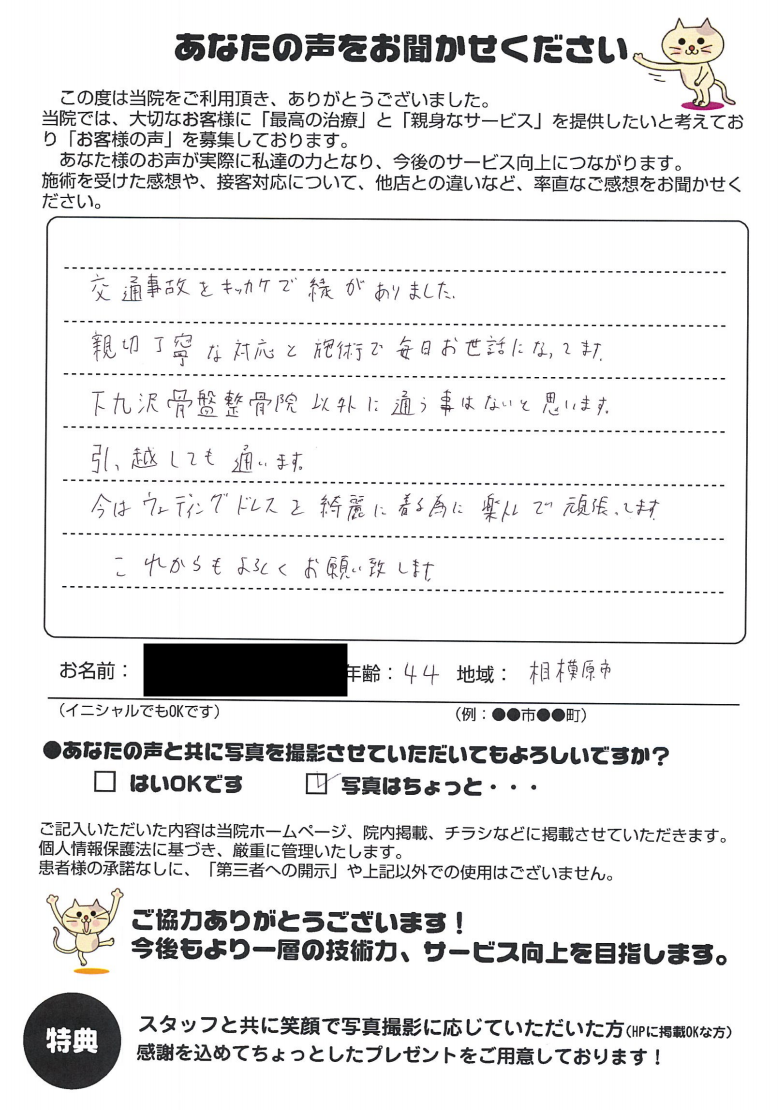 あなたの声をお聞かせください
この度は当院をご利用頂き、ありがとうございました。
当院では、大切なお客様に「最高の治療」と「親身なサービス」を提供したいと考えてお
り「お客様の声」を募集しております。
あなた様のお声が実際に私達の力となり、今後のサービス向上につながります。
施術を受けた感想や、接客対応について、他店との違いなど、率直なご感想をお聞かせく
ださい。
交通事故をキッカケで縁がありました。
親切丁寧な対応と施術で毎日お世話になってます。
下九沢骨盤整骨院以外に通う事はないと思います。
引っ越しても通います。
今はウェディングドレスを綺麗に着る為に楽トレで頑張っします
これからもよろしくお願い致します
お名前: 年齢:44 地域: 相模原市
(イニシャルでもOKです) (例:●●市●●町)
●あなたの声と共に写真を撮影させていただいてもよろしいですか?
□ はいOKです ☑ 写真はちょっと・・・
ご記入いただいた内容は当院ホームページ、院内掲載、チラシなどに掲載させていただきます。
個人情報保護法に基づき、厳重に管理いたします。
患者様の承諾なしに、「第三者への開示」や上記以外での使用はございません。
ご協力ありがとうございます!
今後もより一層の技術力、サービス向上を目指します。
特典
スタッフと共に笑顔で写真撮影に応じていただいた方(HPに掲載OKな方)
感謝を込めてちょっとしたプレゼントをご用意しております!